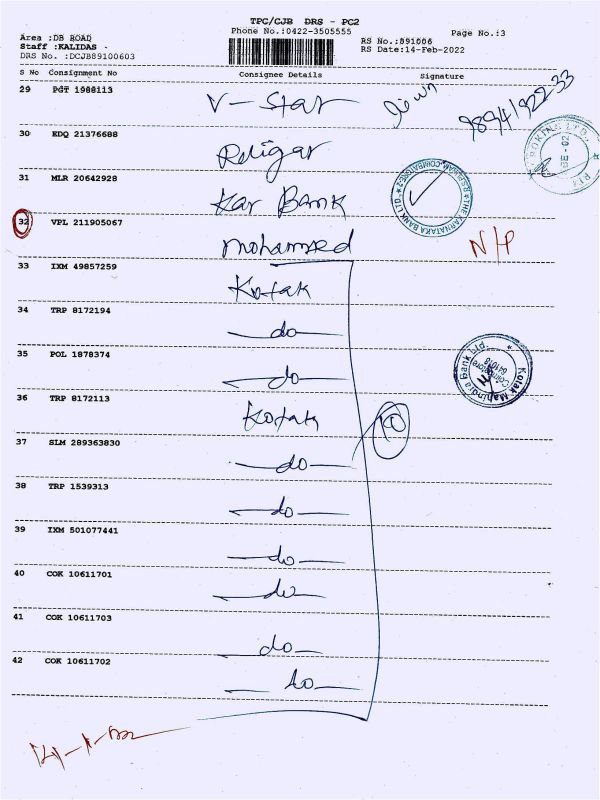 TPC/CJB DRS - PC2
Phone No.:0422-3505555
Page No.:3
Area :DB ROAD
Staff :KALIDAS
DRS No. :DCJB89100603
RS No.:891006
RS Date:14-Feb-2022
S No Consignment No Consignee Details Signature
29 PGT 1988113 V-Star
30 EDQ 21376688 Religar
31 MLR 20642928 Kar Bank
THE KARNATAKA BANK LTD.
32 VPL 211905067 Mohammed N/P
33 IXM 49857259 Kotak
34 TRP 8172194 do
35 POL 1878374 do
Kotak Mahindra Bank Ltd.
Coimbatore
641018
36 TRP 8172113 Kotak 10
37 SLM 289363830 do
38 TRP 1539313 do
39 IXM 501077441 do
40 COK 10611701 do
41 COK 10611703 do
42 COK 10611702 do